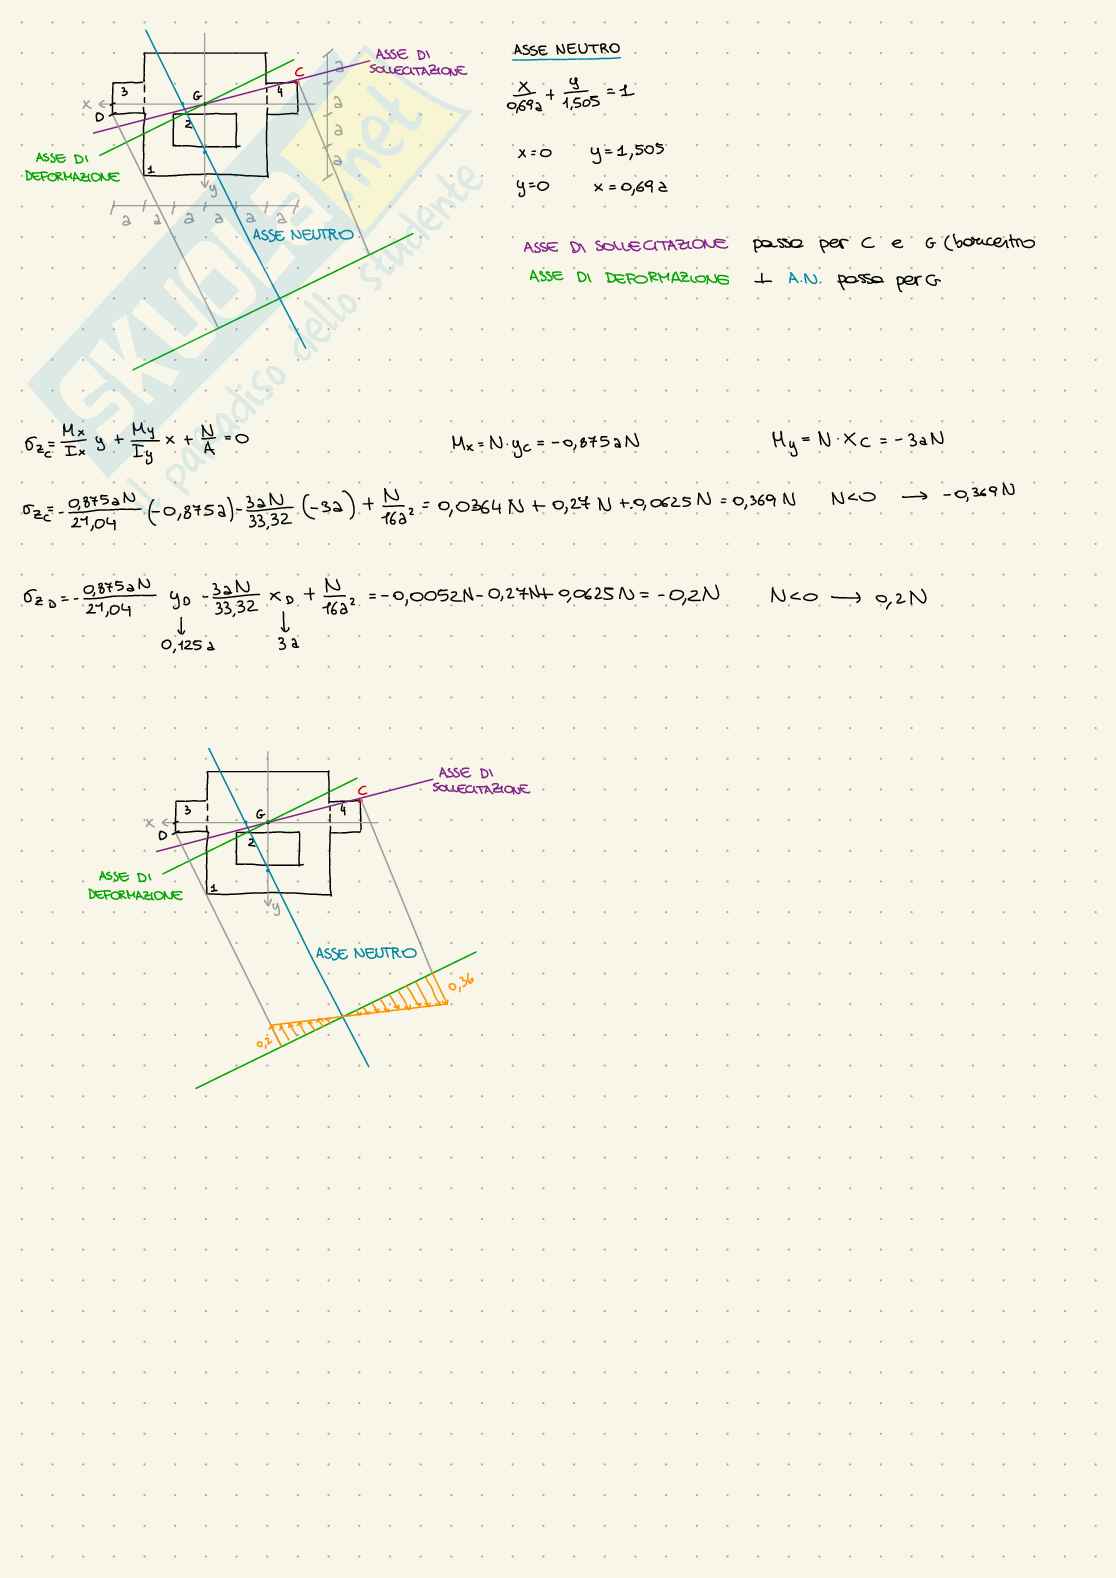 ASSE DI
SOLLECITAZIONE
C
3
4
G
x
D
2
a
a
a
a
ASSE DI
DEFORMAZIONE
1
y
a a a a a a
ASSE NEUTRO
ASSE NEUTRO
x/0,69a + y/1,505 = 1
x=0 y=1,505
y=0 x=0,69a
ASSE DI SOLLECITAZIONE passa per C e G (baricentro
ASSE DI DEFORMAZIONE ⊥ A.N. passa per G
SKUOLA.net
il paradiso dello studente
σzc = Mx/Ix y + My/Iy x + N/A = 0 Mx = N·yc = -0,875aN My = N·xc = -3aN
σzc = -0,875aN/21,04 (-0,875a) - 3aN/33,32 (-3a) + N/16a² = 0,0364N + 0,27N + 0,0625N = 0,369N N<0 → -0,369N
σzD = -0,875aN/21,04 yD - 3aN/33,32 xD + N/16a² = -0,0052N - 0,27N + 0,0625N = -0,2N N<0 → 0,2N
↓ ↓
0,125a 3a
ASSE DI
SOLLECITAZIONE
C
3
4
G
x
D
2
ASSE DI
DEFORMAZIONE
1
y
ASSE NEUTRO
0,36
0,2